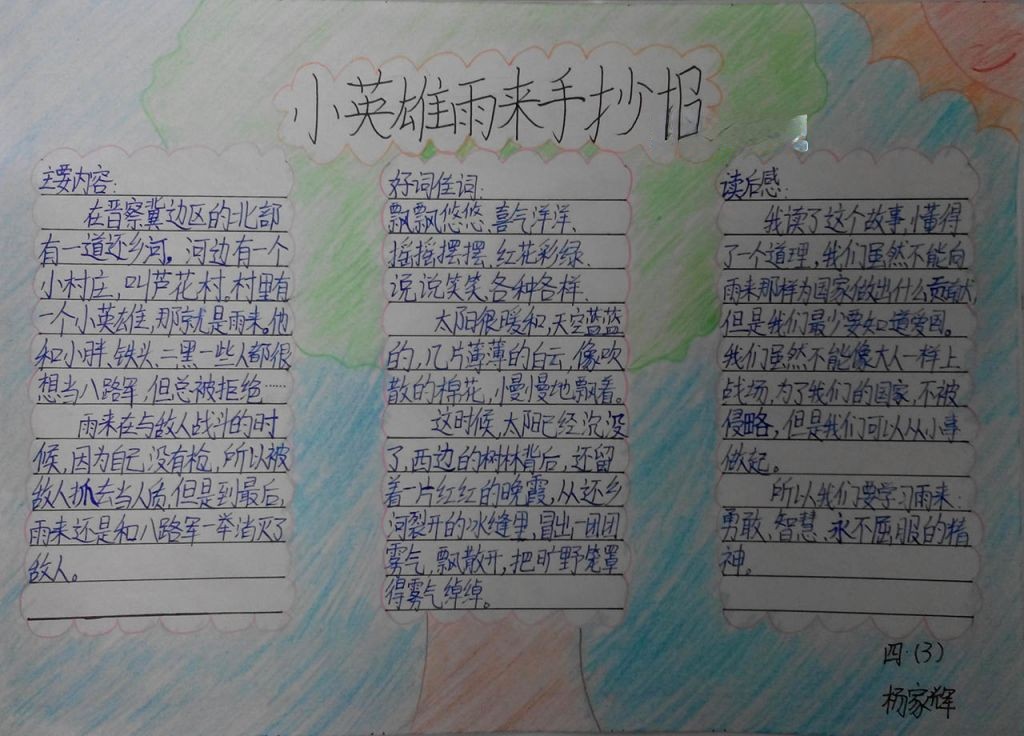 小英雄雨来手抄报
主要内容:
在晋察冀边区的北部
有一道还乡河。河边有一个
小村庄,叫芦花村。村里有
一个小英雄,那就是雨来。他
和小胖、铁头、二黑一些人都很
想当八路军,但总被拒绝……
雨来在与敌人战斗的时
候,因为自己没有枪,所以被
敌人抓去当人质,但是到最后,
雨来还是和八路军一举消灭了
敌人。
好词佳词:
飘飘悠悠、喜气洋洋、
摇摇摆摆、红花彩绿、
说说笑笑、各种各样、
太阳很暖和,天空蓝蓝
的,几片薄薄的白云,像吹
散的棉花,慢慢地飘着。
这时候,太阳已经沉没
了,西边的树林背后,还留
着一片红红的晚霞,从还乡
河裂开的冰缝里,冒出一团团
雾气,飘散开,把旷野笼罩
得雾气绰绰。
读后感:
我读了这个故事,懂得
了一个道理,我们虽然不能向
雨来那样为国家做出什么贡献,
但是我们最少要知道爱国。
我们虽然不能像大人一样上
战场,为了我们的国家,不被
侵略,但是我们可以从小事
做起。
所以我们要学习雨来:
勇敢、智慧、永不屈服的精
神。
四·(3)
杨家辉